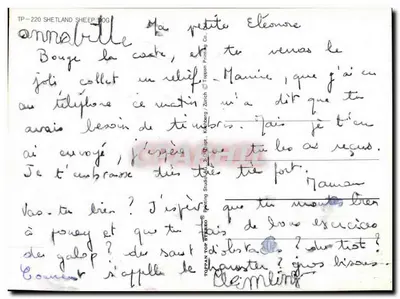 TP-220 SHETLAND SHEEP DOG
annabelle
Ma petite Eléonore
Bouge la carte, et tu verras le
joli collet en relief. Mamie, que j'ai eu
au téléphone ce matin m'a dit que tu
avais besoin de timbres. Mais je t'en
ai envoyé, j'espère que tu les as reçus.
Je t'embrasse très très très fort.
Maman
Vas-tu bien? J'espère que tu montes bien
à poney et que tu fais de bons exercices
du galop? du saut d'obstacle? du trot?
Comment s'appelle le ? gros bisous.
Clémline